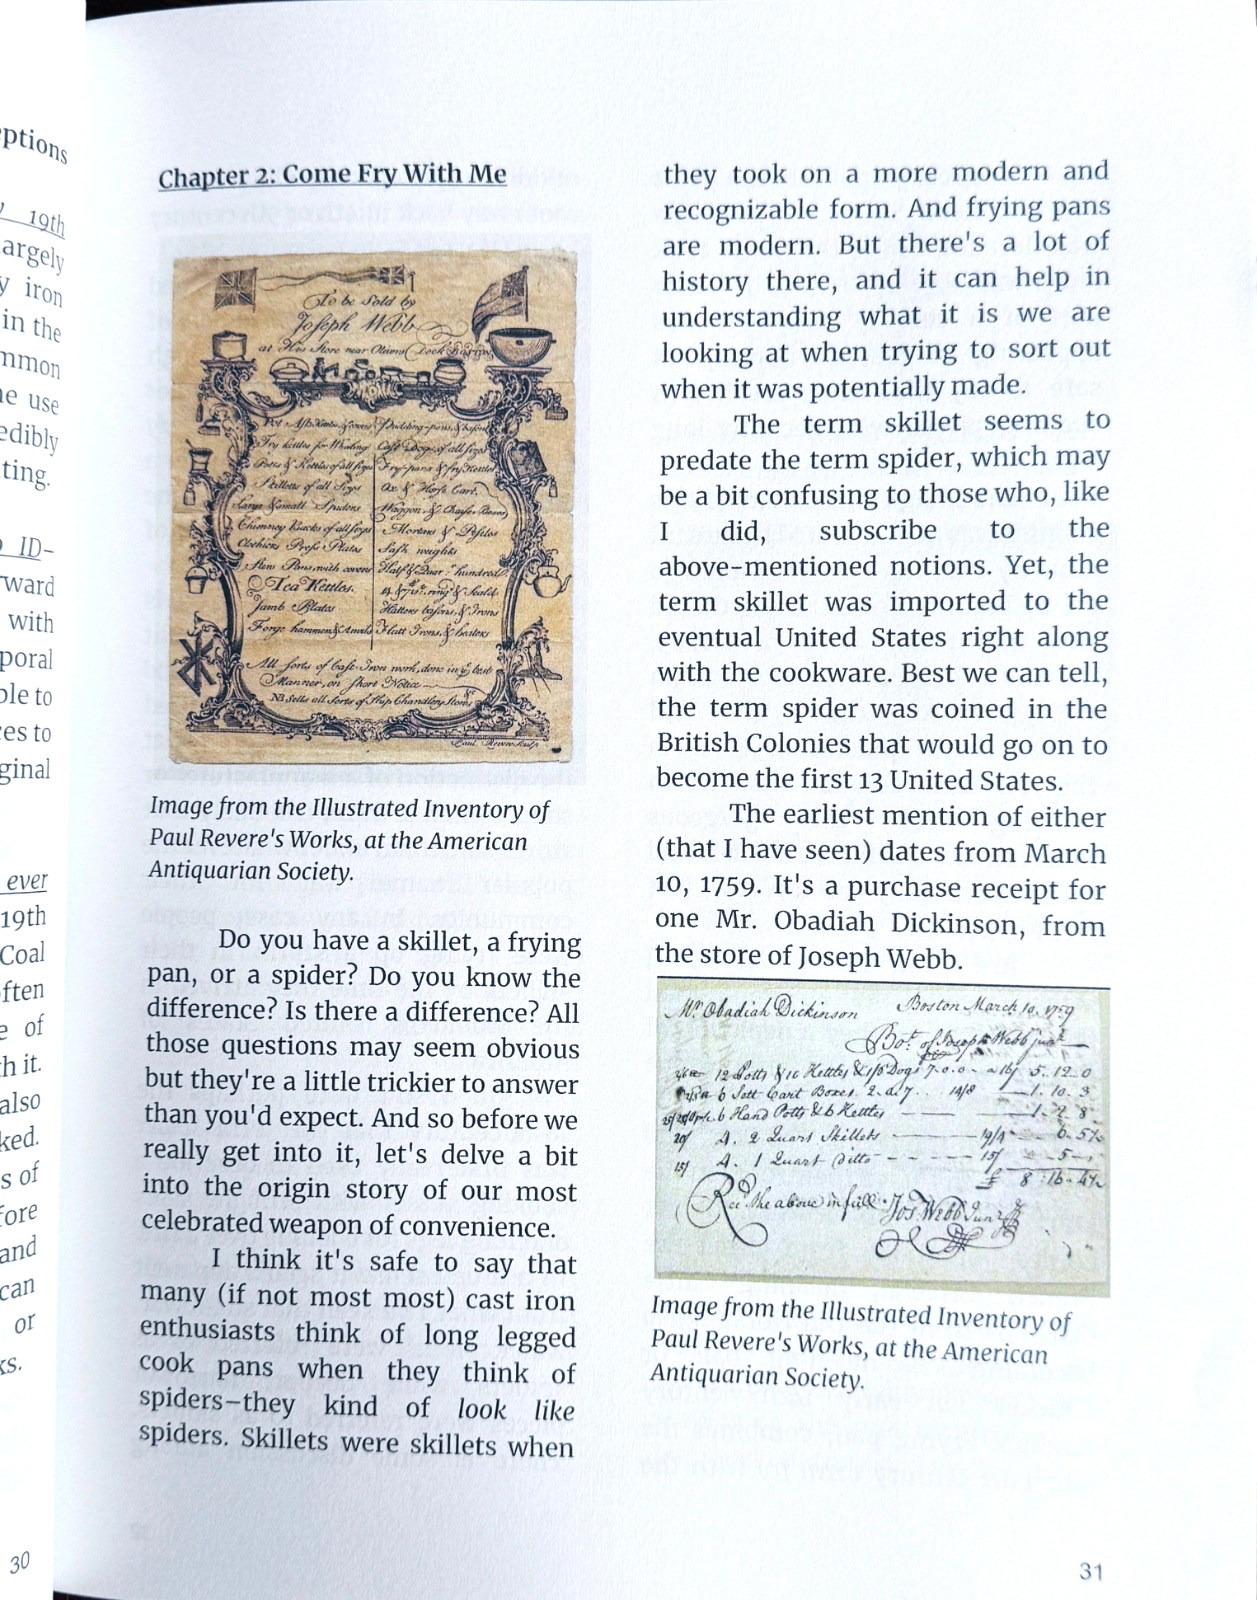 ptions
19th
argely
y iron
in the
mmon
e use
edibly
ting.
ID-
ward
with
poral
ole to
ces to
ginal
ever
19th
Coal
ften
e of
h it.
also
ked.
s of
fore
and
can
or
ks.
30
Chapter 2: Come Fry With Me
To be Sold by
Joseph Webb
at His Store near Olivers Dock Boston
Pot Ash Kettles & covers
Fry kettles for Whaling
Potts & Kettles of all sizes
Skillets of all Sizes
Large & small Spiders
Chimney Backs of all sizes
Clothiers Press Plates
Stew Pans, with covers
Tea Kettles.
Jamb Plates
Forge hammers & Anvils
Pudding-pans, & basons
Cast Dogs, of all sizes
Fry-pans & fry Kettles
Ox & Horse Cart,
Waggon, & Chaise Boxes
Mortars & Pestles
Sash weights
Half & Quar. hundred
14 & 7 lb. ring & Scale
Hatters basons, & Irons
Flatt Irons, & heaters
All sorts of Cast-Iron work, done in ye best
Manner, on Short Notice
NB Sells all Sorts of Ship Chandlery Stores &c
Paul Revere Sculp
Image from the Illustrated Inventory of
Paul Revere's Works, at the American
Antiquarian Society.
Do you have a skillet, a frying
pan, or a spider? Do you know the
difference? Is there a difference? All
those questions may seem obvious
but they're a little trickier to answer
than you'd expect. And so before we
really get into it, let's delve a bit
into the origin story of our most
celebrated weapon of convenience.
I think it's safe to say that
many (if not most most) cast iron
enthusiasts think of long legged
cook pans when they think of
spiders—they kind of look like
spiders. Skillets were skillets when
they took on a more modern and
recognizable form. And frying pans
are modern. But there's a lot of
history there, and it can help in
understanding what it is we are
looking at when trying to sort out
when it was potentially made.
The term skillet seems to
predate the term spider, which may
be a bit confusing to those who, like
I did, subscribe to the
above-mentioned notions. Yet, the
term skillet was imported to the
eventual United States right along
with the cookware. Best we can tell,
the term spider was coined in the
British Colonies that would go on to
become the first 13 United States.
The earliest mention of either
(that I have seen) dates from March
10, 1759. It's a purchase receipt for
one Mr. Obadiah Dickinson, from
the store of Joseph Webb.
Mr. Obadiah Dickinson Boston March 10, 1759
Bot. of Joseph Webb junr
12 Potts & 10 Kettles & 1 pr Dogs 7.0.0 5.12.0
6 Sett Cart Boxes 14/8 1.10.3
6 Hand Potts & 6 Kettles 1.2.8
20/ 4. 2 Quart Skillets 19/4 6.5½
15/ 4. 1 Quart Ditto 15/ 5
£ 8:16.4½
Recd. the above in full Jos. Webb Junr
Image from the Illustrated Inventory of
Paul Revere's Works, at the American
Antiquarian Society.
31